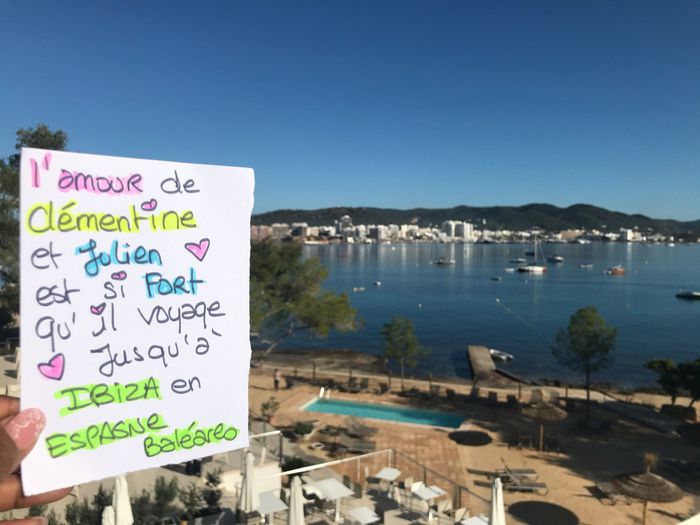 l'amour de
Clémentine
et Julien
est si FORT
qu'il voyage
Jusqu'à
IBIZA en
ESPAGNE
Baléares